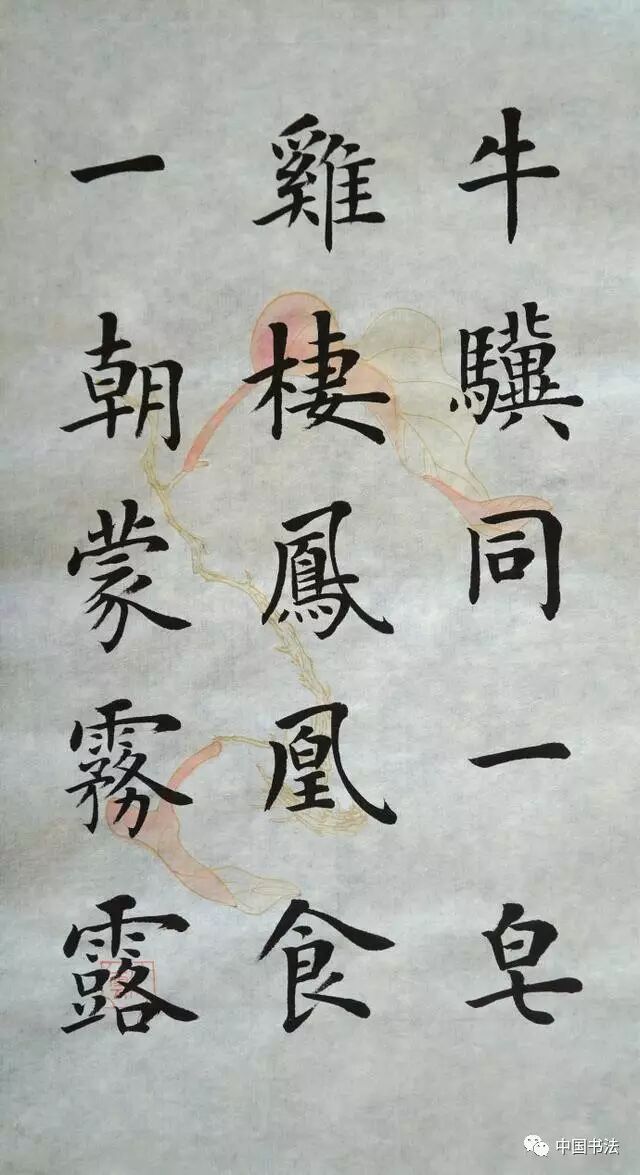 牛驥同一皂
雞棲鳳凰食
一朝蒙霧露
中国书法